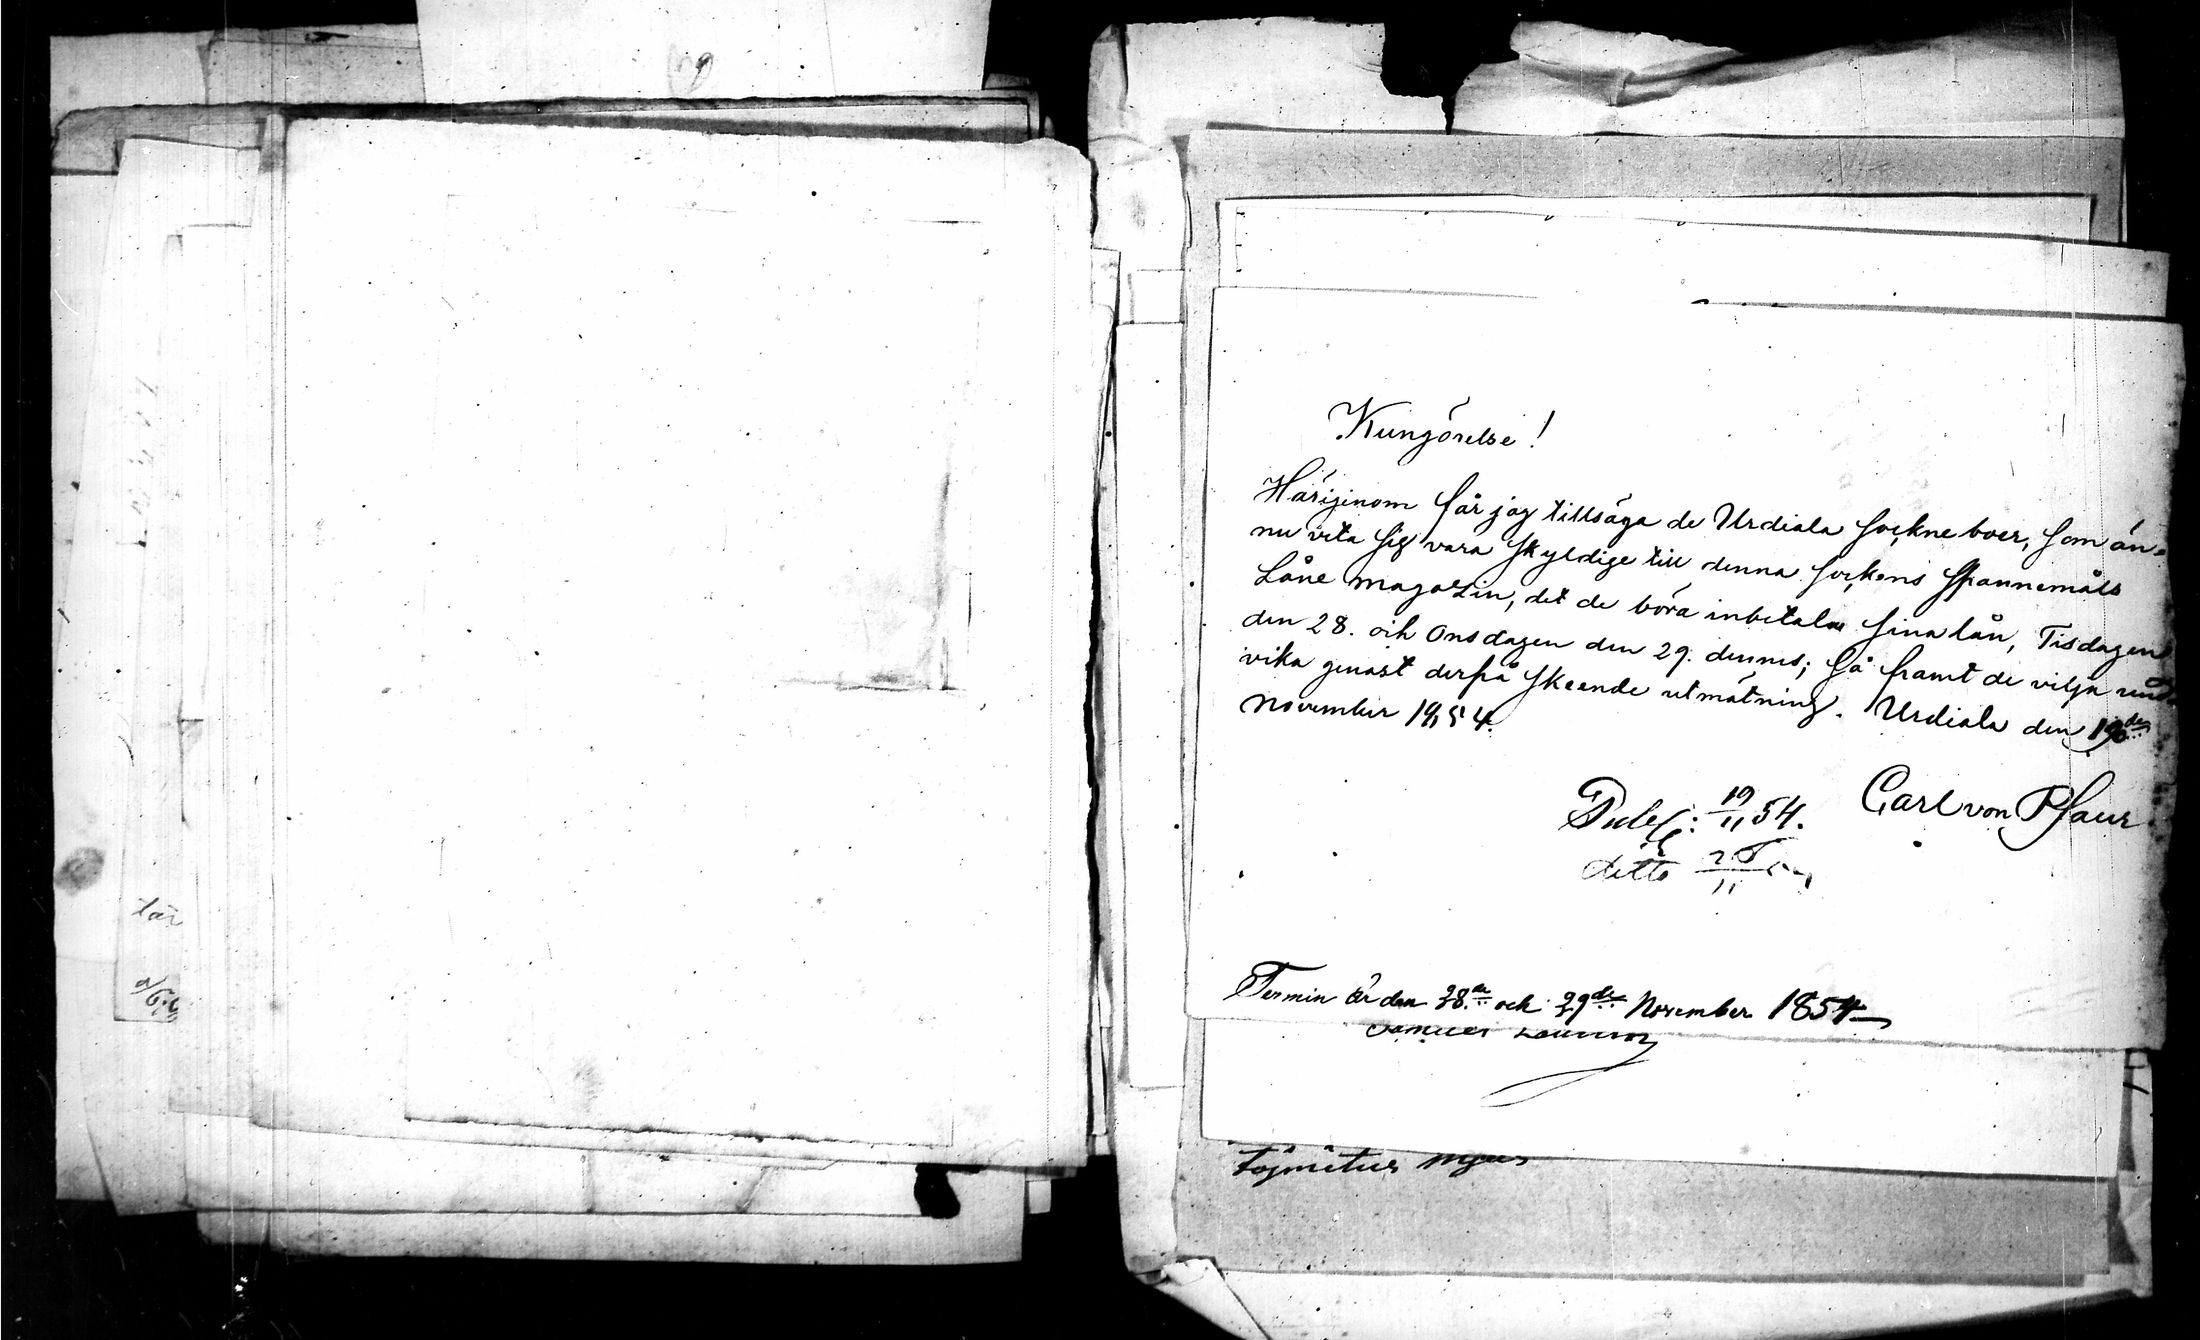 Kungörelse!
Härigenom får jag tillsäga de Urdiala sockneboer, som än-
nu veta sig vara skyldige till denna sockens Spannemåls
Låne magazin, det de böra inbetala sina lån, Tisdagen
den 28. och Onsdagen den 29. dennes; så framt de vilja und-
vika genast derpå skeende utmätning. Urdiala den 19de
November 1854.
Carl von Pfaler
Publ: 19/11 54.
ditto 26/11 54
Termin är den 28de och 29de November 1854
Samuel